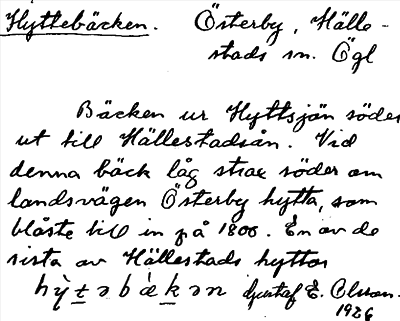 Hyttebäcken. Österby, Hälle-
stads sn. Ögl
Bäcken ur Hyttsjön söder
ut till Hällestadsån. Vid
denna bäck låg strax söder om
landsvägen Österby hytta, som
blåste till in på 1800. En av de
sista av Hällestads hyttor
hy̆t̲əbäk̲ən Gustaf E. Olsson.
1926